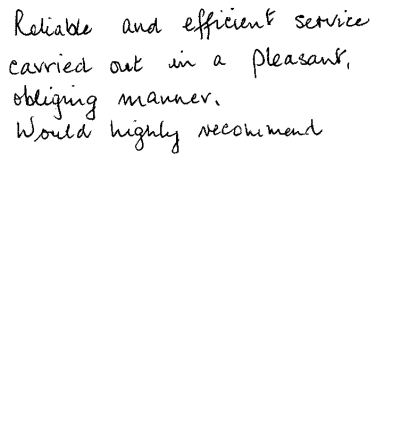 Reliable and efficient service
carried out in a pleasant,
obliging manner.
Would highly recommend